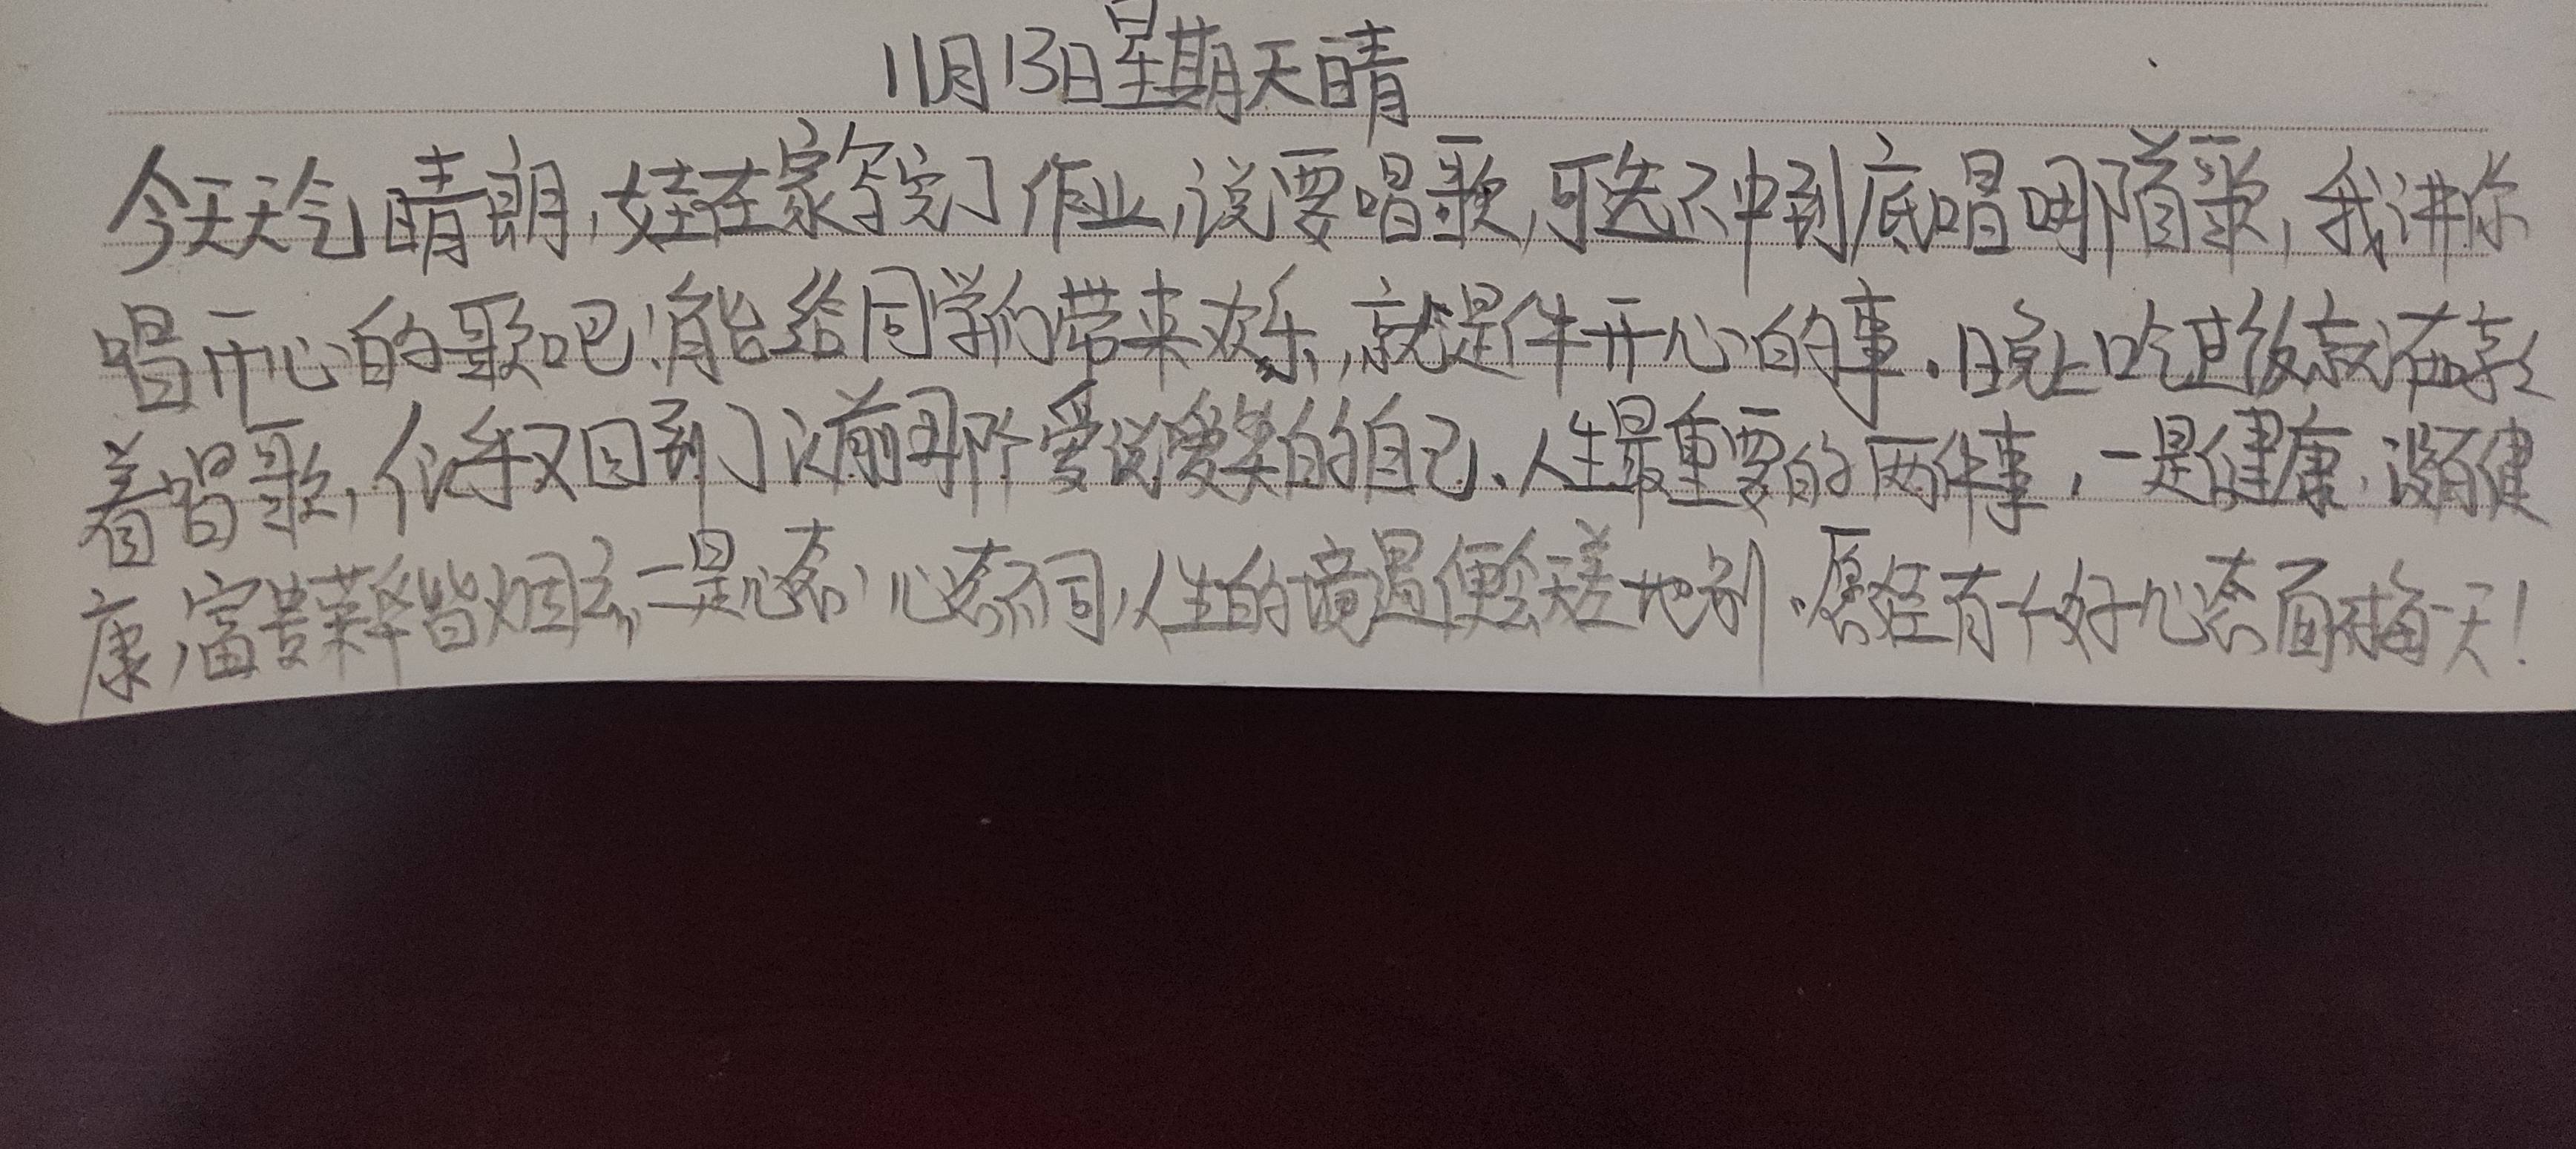 11月13日星期天晴
今天天气晴朗,娃在家写完了作业,说要唱歌,可选不中到底唱哪首歌,我讲你
唱开心的歌吧,能给同学们带来欢乐,就是件开心的事.晚上吃过饭就在
着唱歌,似乎又回到了以前那个爱说爱笑的自己.人生最重要的两件事,一是健康,没有健
康,富贵荣华皆烟云,二是心态,心态不同,人生的境遇便会天差地别.愿娃有个好心态面对每一天!